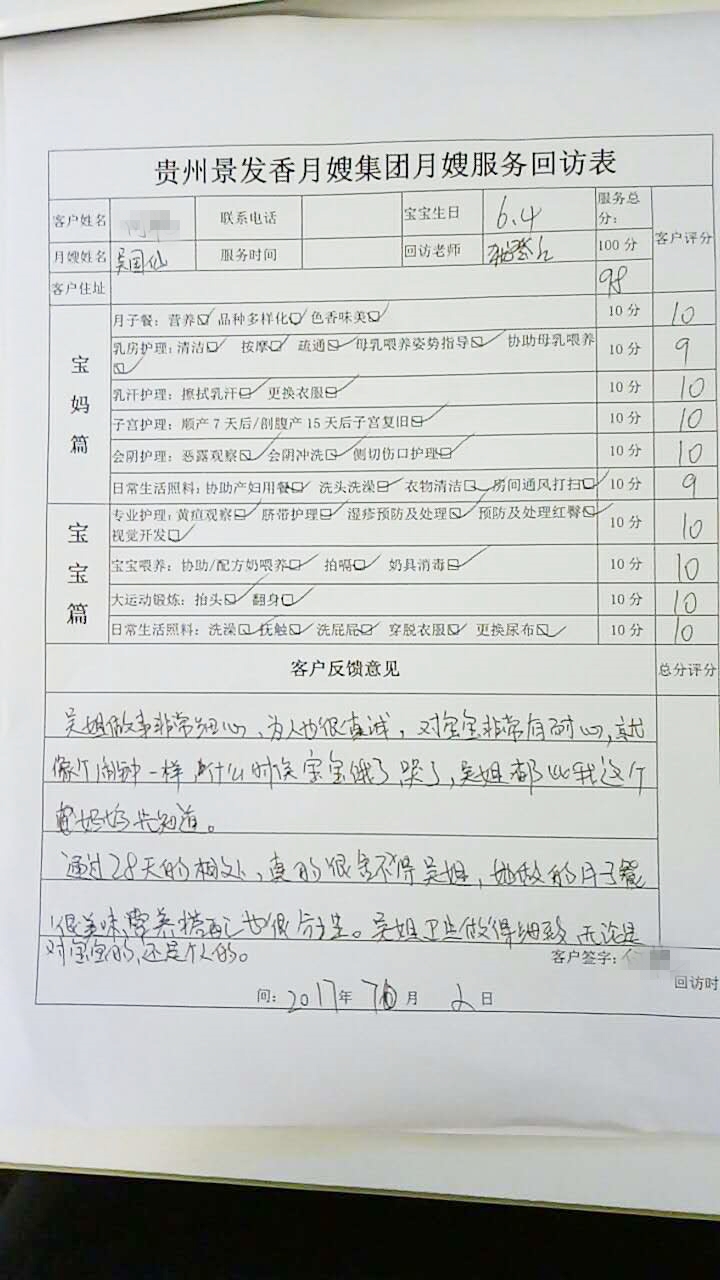 贵州景发香月嫂集团月嫂服务回访表
客户姓名 联系电话 宝宝生日 6.4 服务总分: 客户评分
月嫂姓名 吴国仙 服务时间 回访老师 100分
客户住址 98
宝妈篇
月子餐:营养☑ 品种多样化☑ 色香味美☑ 10分 10
乳房护理:清洁☑ 按摩☑ 疏通☑ 母乳喂养姿势指导☑ 协助母乳喂养☑ 10分 9
乳汗护理:擦拭乳汗☑ 更换衣服☑ 10分 10
子宫护理:顺产7天后/剖腹产15天后子宫复旧☑ 10分 10
会阴护理:恶露观察☑ 会阴冲洗☑ 侧切伤口护理☑ 10分 10
日常生活照料:协助产妇用餐☑ 洗头洗澡☑ 衣物清洁☑ 房间通风打扫☑ 10分 9
宝宝篇
专业护理:黄疸观察☑ 脐带护理☑ 湿疹预防及处理☑ 预防及处理红臀☑
视觉开发☑ 10分 10
宝宝喂养:协助/配方奶喂养☑ 拍嗝☑ 奶具消毒☑ 10分 10
大运动锻炼:抬头☑ 翻身☑ 10分 10
日常生活照料:洗澡☑ 抚触☑ 洗屁屁☑ 穿脱衣服☑ 更换尿布☑ 10分 10
客户反馈意见 总分评分
吴姐做事非常细心,为人也很真诚,对宝宝非常有耐心,就
像个闹钟一样,什么时候宝宝饿了,哭了,吴姐都比我这个
妈妈先知道。
通过28天的相处,真的很舍不得吴姐,她做的月子餐
很美味,营养搭配也很分主。吴姐卫生做得细致,无论是
对宝宝的,还是个人的。
客户签字:
回访时
间:2017年 7月 2日